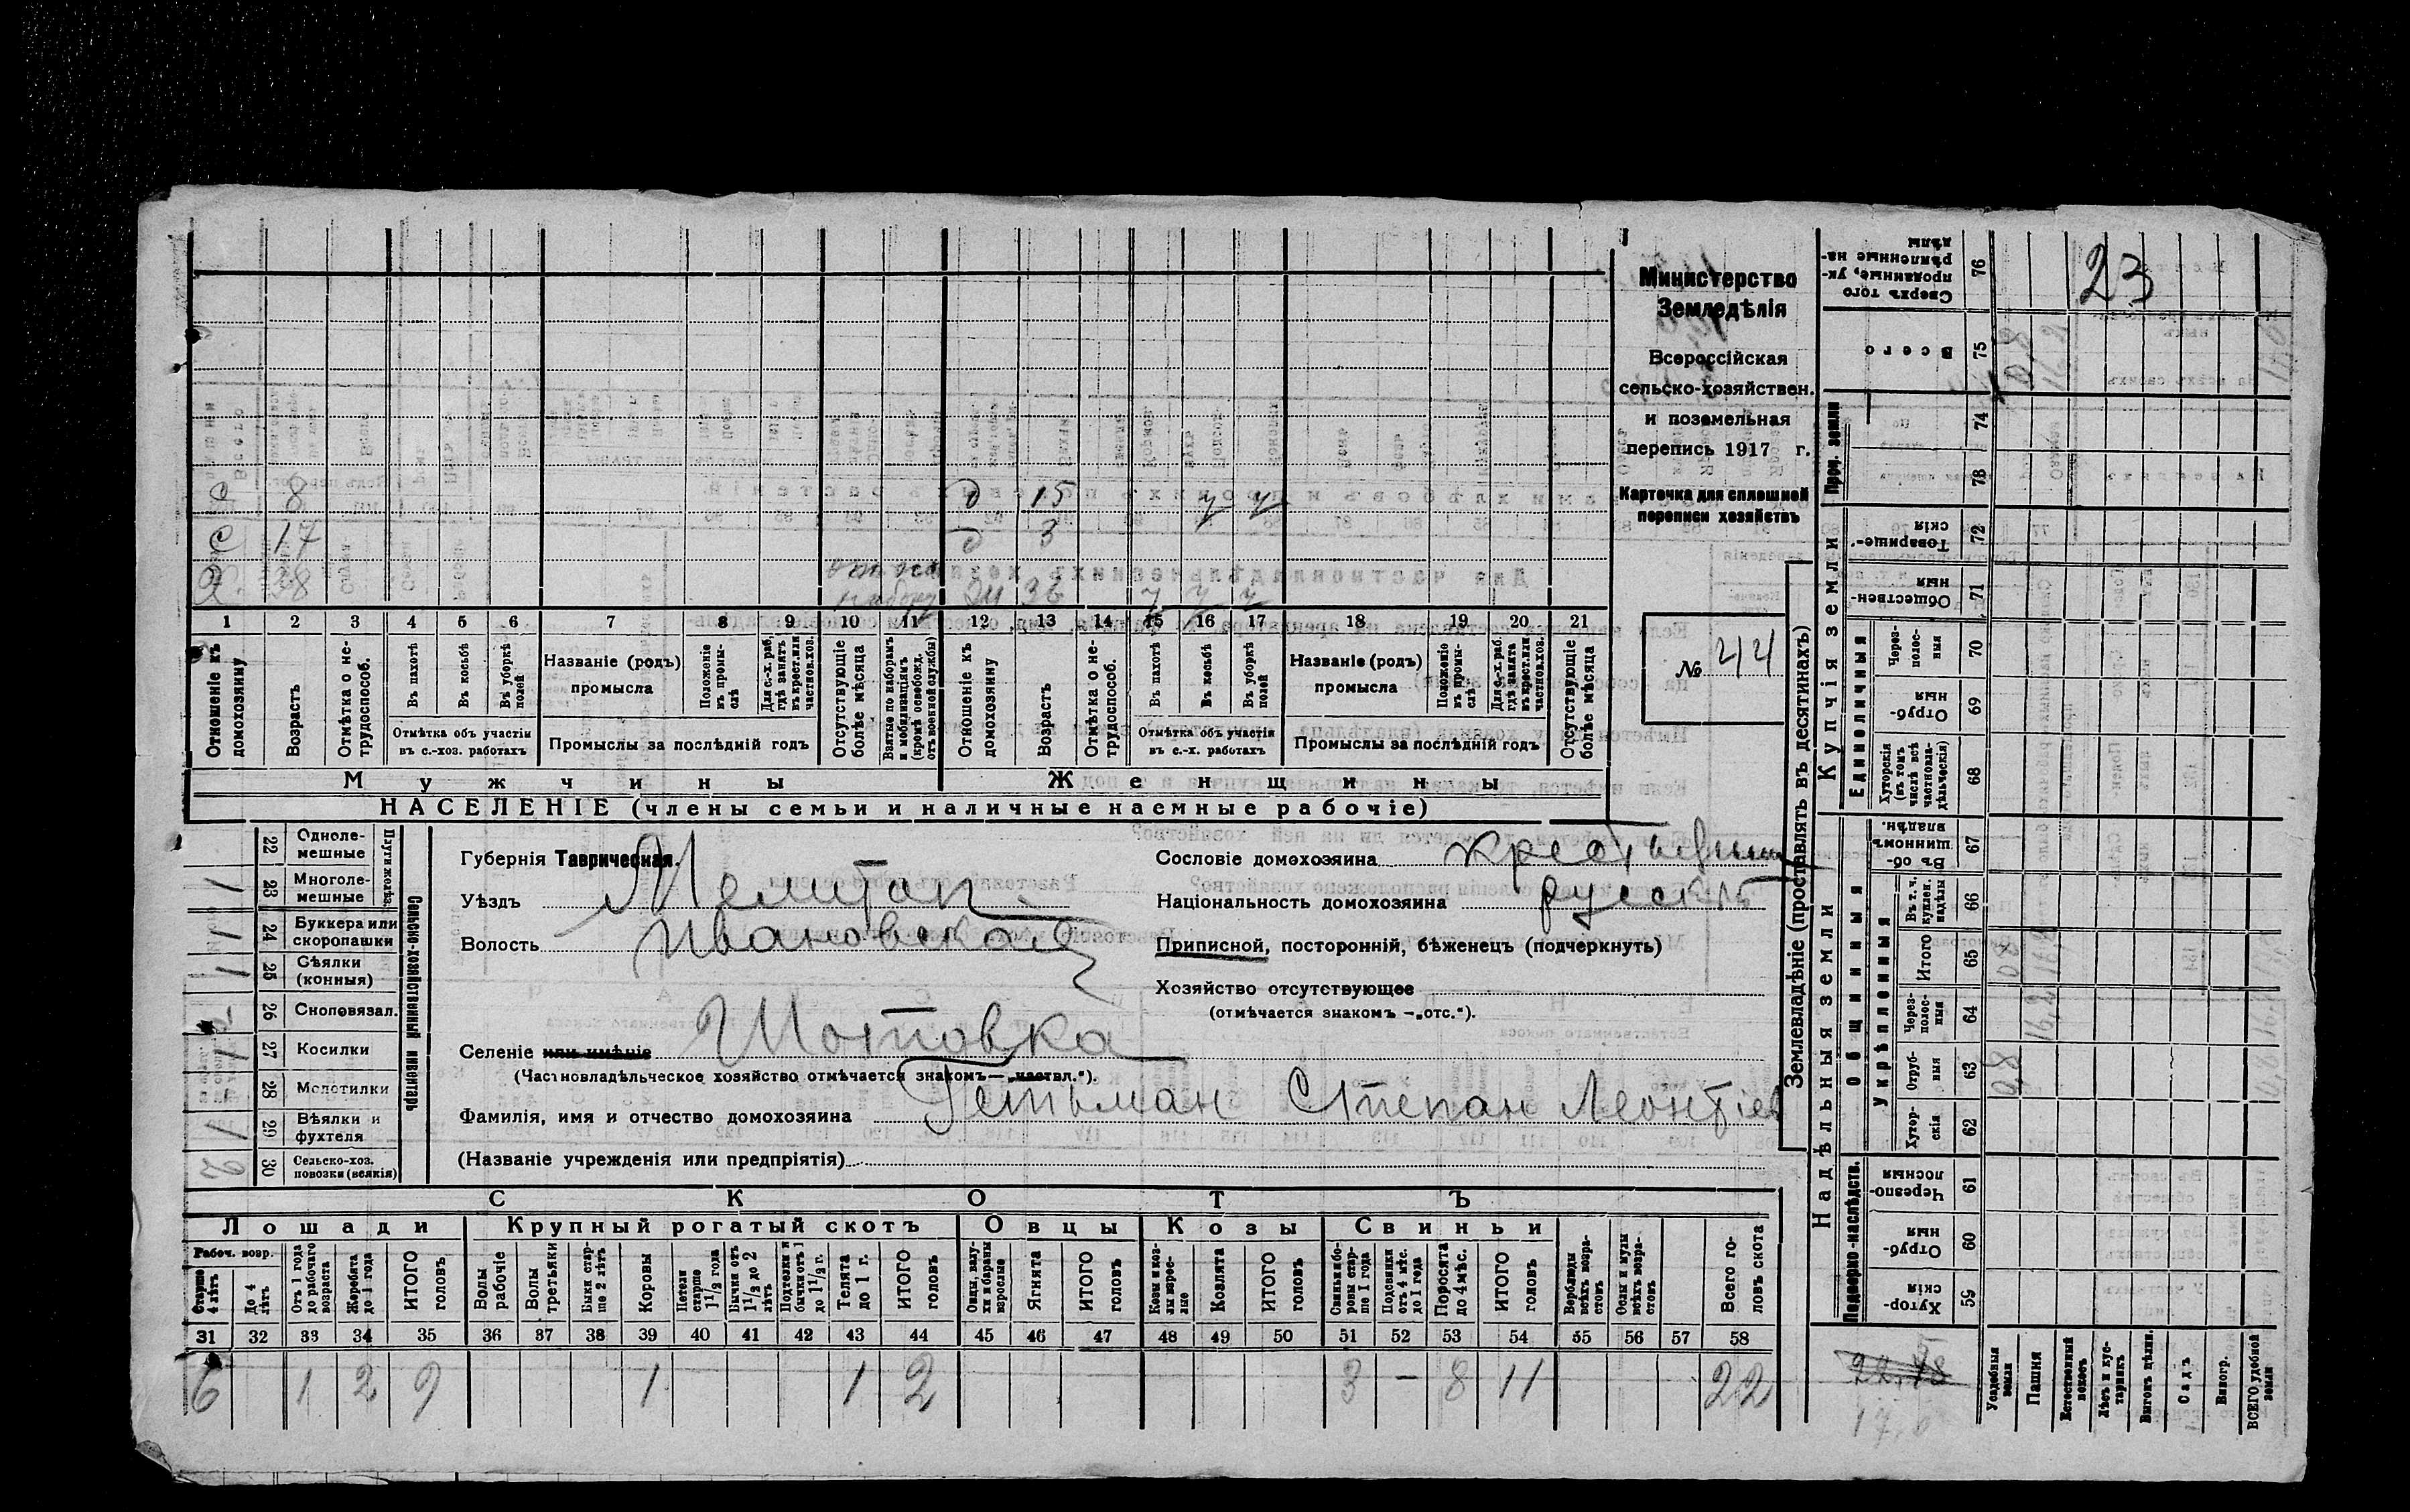 С 8 д 15 у у
С 17 д 3
Х. 38 наборy Ж 36 у у у
1 2 3 4 5 6 7 8 9 10 11 12 13 14 15 16 17 18 19 20 21
Отношеніе къ домохозяину
Возрастъ
Отмѣтка о не-трудоспособ.
Въ пахотѣ
Въ косьбѣ
Въ уборкѣ полей
Отмѣтка объ участіи въ с.-хоз. работахъ
Названіе (родъ) промысла
Положеніе въ промы-слѣ
Для с.-х. раб. гдѣ занятъ въ крест. или частнов. хоз.
Промыслы за послѣдній годъ
Отсутствующіе болѣе мѣсяца
Взятые по наборамъ и мобилизаціямъ (кромѣ освобожд. отъ военной службы)
Отношеніе къ домохозяину
Возрастъ
Отмѣтка о не-трудоспособ.
Въ пахотѣ
Въ косьбѣ
Въ уборкѣ полей
Отмѣтка объ участіи въ с.-х. работахъ
Названіе (родъ) промысла
Положеніе въ промы-слѣ
Для с.-х. раб. гдѣ занята въ крест. или частнов. хоз.
Промыслы за послѣдній годъ
Отсутствующіе болѣе мѣсяца
Мужчины Женщины
НАСЕЛЕНІЕ (члены семьи и наличные наемные рабочіе)
Министерство
Земледѣлія
Всероссійская
сельско-хозяйствен.
и поземельная
перепись 1917 г.
Карточка для сплошной
переписи хозяйствъ
№ 44
Губернія Таврическая.
Уѣздъ Мелитоп.
Волость Ивановской
Селеніе или имѣніе Шотовка
(Частновладѣльческое хозяйство отмѣчается знакомъ—„частвл.“).
Фамилія, имя и отчество домохозяина Гетьман Степан Леонтіев
(Названіе учрежденія или предпріятія)
Сословіе домохозяина крестьянин
Національность домохозяина русскій
Приписной, посторонній, бѣженецъ (подчеркнуть)
Хозяйство отсутствующее
(отмѣчается знакомъ —„отс.“).
Сельско-хозяйственный инвентарь
Плуги желѣз.
22 Одноле-мешные
23 Многоле-мешные 1
24 Буккера или скоропашки 1
25 Сѣялки (конныя) 1
26 Сноповязал.
27 Косилки 1
28 Молотилки -
29 Вѣялки и фухтеля 1
30 Сельско-хоз. повозки (всякія) 2
СКОТЪ
Лошади Крупный рогатый скотъ Овцы Козы Свиньи
Рабоч. возр.
Старше 4 лѣтъ
До 4 лѣтъ
Отъ 1 года до рабочаго возраста
Жеребята до 1 года
ИТОГО головъ
Волы рабочіе
Волы третьяки
Быки стар-ше 2 лѣтъ
Коровы
Нетели старше 1½ года
Бычки отъ 1½ до 2 лѣтъ
Подтелки и бычки отъ 1 до 1½ г.
Телята до 1 г.
ИТОГО головъ
Овцы, валу-хи и бараны взрослые
Ягнята
ИТОГО головъ
Козы и коз-лы взрос-лые
Козлята
ИТОГО головъ
Свиньи и бо-ровы стар-ше 1 года
Подсвинки отъ 4 мѣс. до 1 года
Поросята до 4 мѣс.
ИТОГО головъ
Верблюды всѣхъ возра-стовъ
Ослы и мулы всѣхъ возра-стовъ
Всего го-ловъ скота
31 32 33 34 35 36 37 38 39 40 41 42 43 44 45 46 47 48 49 50 51 52 53 54 55 56 57 58
6 1 2 9 1 1 2 3 - 8 11 22
Землевладѣніе (проставлять въ десятинахъ)
Купчія земли
Проч. земли
Надѣльныя земли
Единоличныя
Общинныя
Укрѣпленныя
Подворно-наслѣдств.
Сверхъ того проданные, ук-рѣпленные на-дѣлы 76 23
Всего 75 0,8 16,2
74
73
Товарище-скія 72
Обществен-ныя 71
Через-полос-ныя 70
Отруб-ныя 69
Хуторскія (въ томъ числѣ всѣ частновла-дѣльческія) 68
Въ об-щинномъ владѣн. 67
Въ т. ч. куплен. надѣлы 66
Итого 65 0,8 16,2
Через-полос-ныя 64 16,2
Отруб-ныя 63 0,8
Хутор-скія 62
Черезпо-лосныя 61
Отруб-ныя 60
Хутор-скія 59
17,0
Усадебныя земли
Пашня
Естественный покосъ
Лѣсъ и кус-тарникъ
Выгонъ цѣлин.
Садъ
Виногр.
ВСЕГО удобной земли